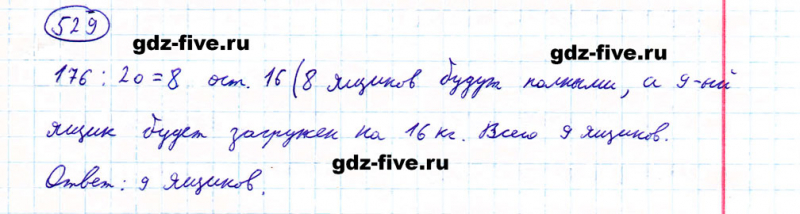 529
gdz-five.ru
gdz-five.ru
176 : 20 = 8 ост. 16 (8 ящиков будут полными, а 9-ый
ящик будет загружен на 16 кг. Всего 9 ящиков.
gdz-five.ru
Ответ: 9 ящиков.